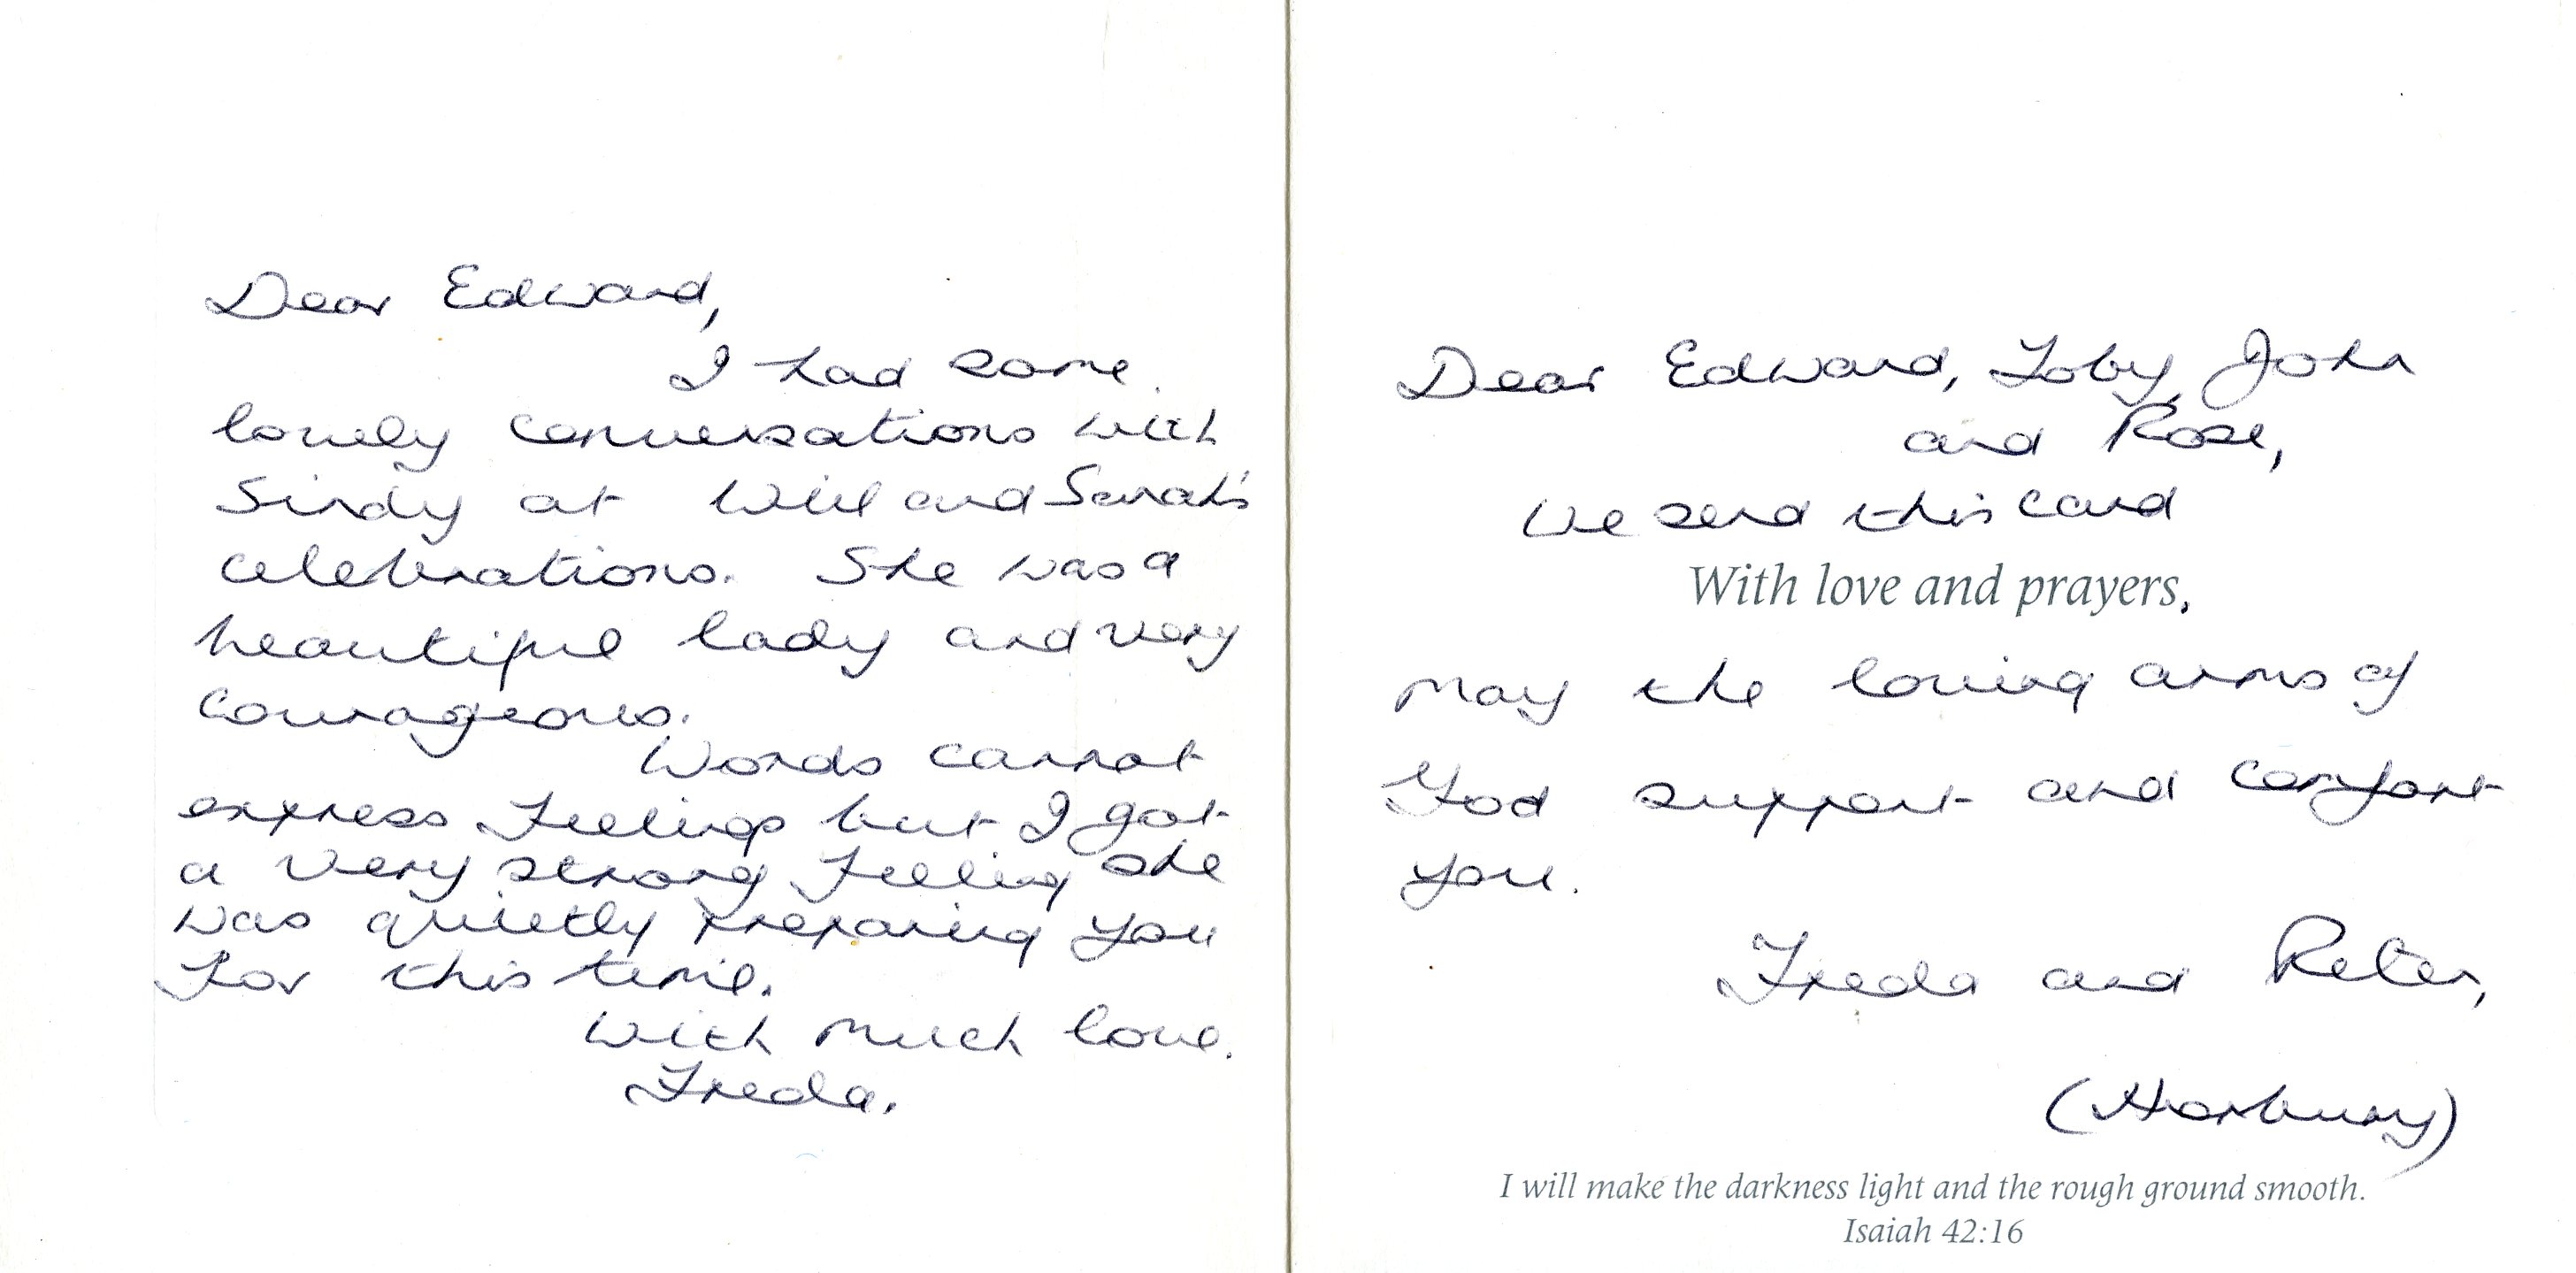 Dear Edward,
I had some
lovely conversations with
Sindy at Will and Sarah's
celebrations. She was a
beautiful lady and very
courageous.
Words cannot
express feelings but I got
a very strong feeling she
was quietly preparing you
for this time.
With much love.
Freda.
Dear Edward, Toby, John
and Rose,
We send this card
With love and prayers,
May the loving arms of
God support and comfort
you.
Freda and Peter,
(Horbury)
I will make the darkness light and the rough ground smooth.
Isaiah 42:16